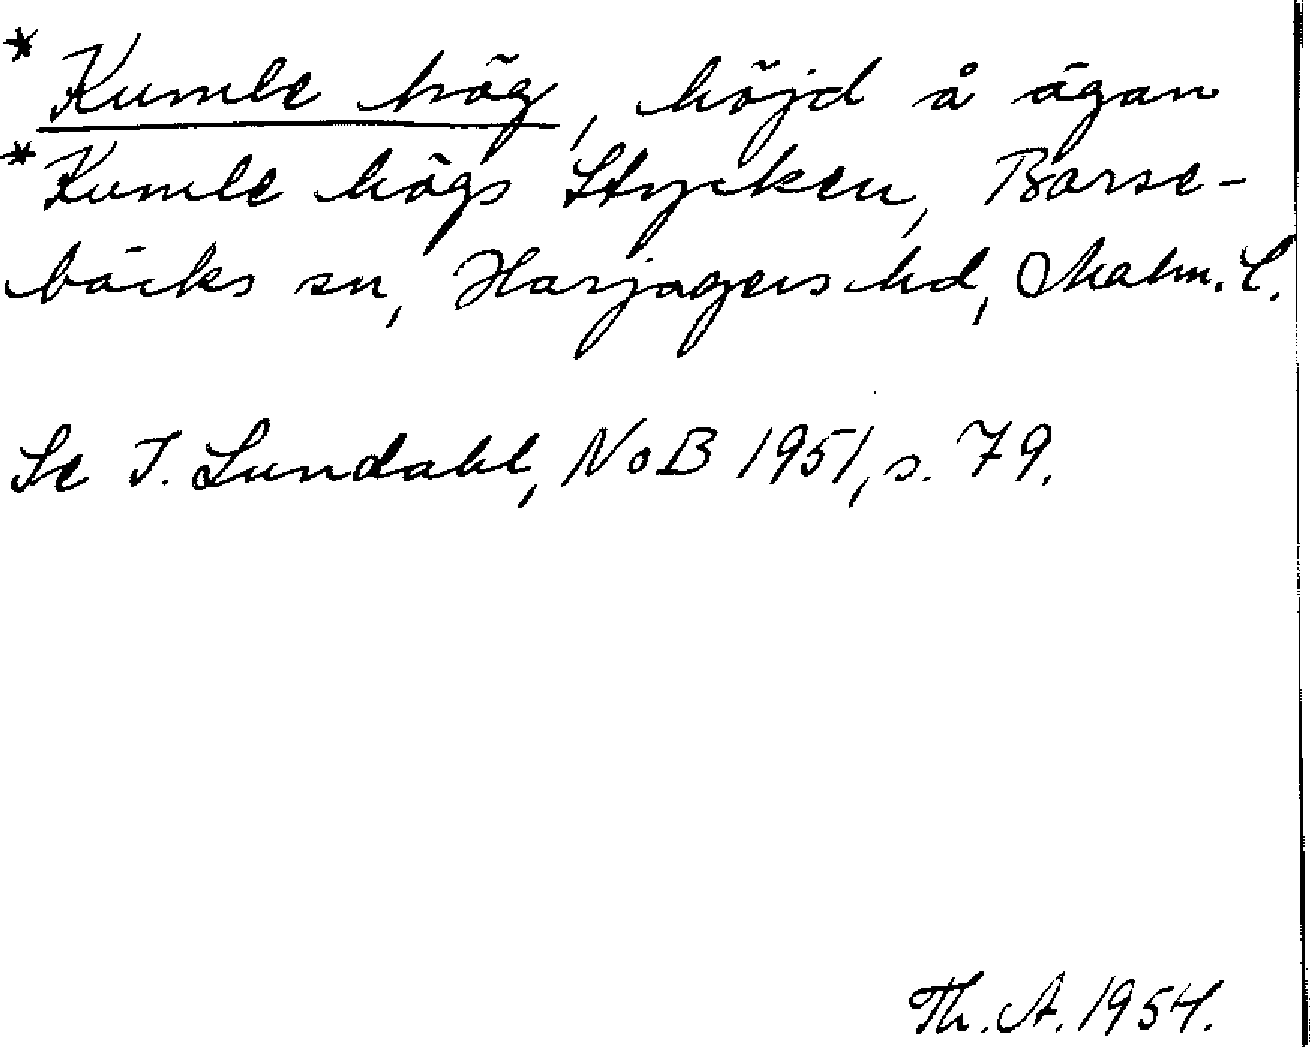 * Kumle hög, höjd å ägan
* Kumle högs Stycken, Barse-
bäcks sn, Harjagers hd, Malm. l.
Se I. Lundahl, NoB 1951, s. 79.
Th. A. 1954.